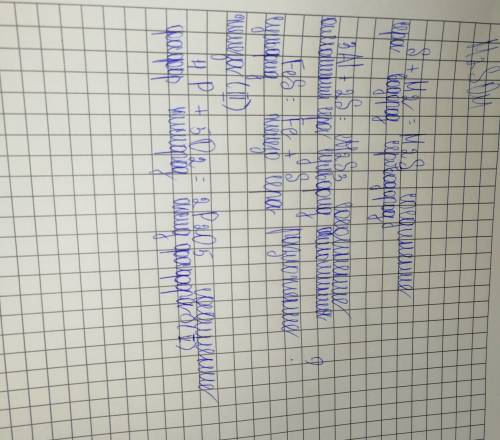 S + H2 = H2S соединение
сера водород сероводород
2Al + 3S = Al2S3 соединение
алюминий сера сульфид алюминия
FeS = Fe + S разложение
сульфид железо сера
железа (II)
4 P + 5O2 = 2P2O5 соединение
фосфор кислород оксид фосфора (V)